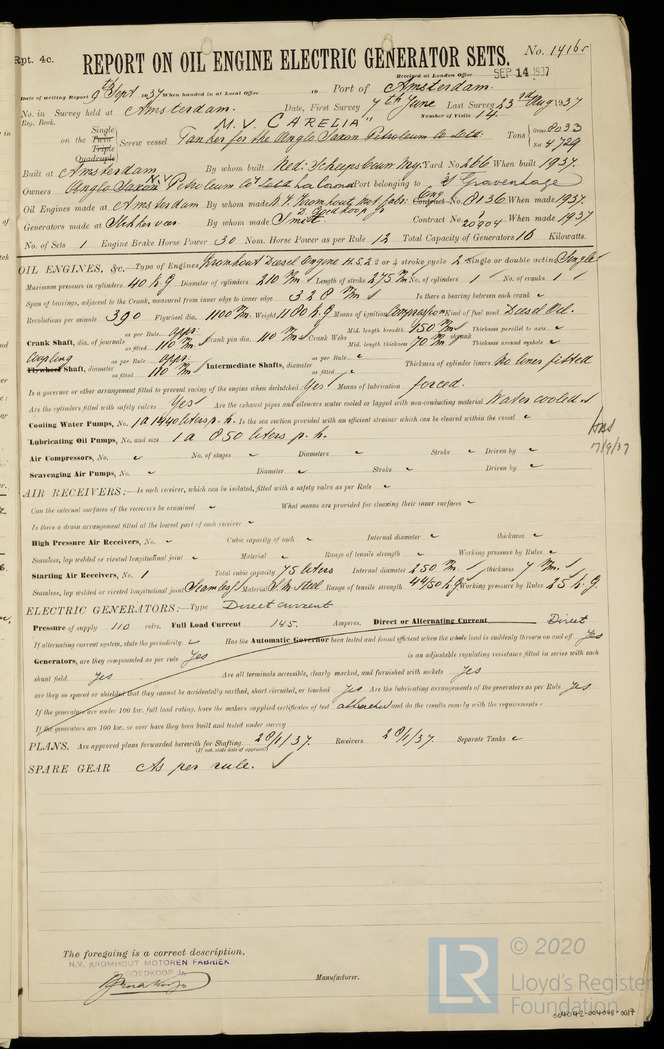 Rpt. 4c.
REPORT ON OIL ENGINE ELECTRIC GENERATOR SETS.
No. 14165
Received at London Office SEP 14 1937
Date of writing Report 9th Sept 1937 When handed in at Local Office 19 Port of Amsterdam.
No. in Survey held at Amsterdam. Date, First Survey 7th June Last Survey 23rd Aug 1937
Reg. Book. Number of Visits 14
on the Single Twin Triple Quadruple Screw vessel M.V. "CARELIA" Tanker for the Anglo Saxon Petroleum Co Ltd. Tons Gross 8033 Net 4729
Built at Amsterdam By whom built Ned: Scheepsbouw My: Yard No. 266 When built 1937.
Owners N.V. Petroleum Port belonging to 's Gravenhage
Oil Engines made at Amsterdam By whom made N.V. Kromhout Mot. fabr. D. Goedkoop Jr Eng Contract No. 8136 When made 1937.
Generators made at Slikkerveer By whom made Smit Contract No. 20904 When made 1937
No. of Sets 1 Engine Brake Horse Power 30 Nom. Horse Power as per Rule 12 Total Capacity of Generators 16 Kilowatts.
OIL ENGINES, &c.—Type of Engines Kromhout Diesel Engine 2 or 4 stroke cycle 2 Single or double acting Single
Maximum pressure in cylinders 40 k.g. Diameter of cylinders 210 m/m Length of stroke 275 m/m No. of cylinders 1 No. of cranks 1
Span of bearings, adjacent to the Crank, measured from inner edge to inner edge 328 m/m Is there a bearing between each crank
Revolutions per minute 390 Flywheel dia. 1100 m/m Weight 1180 k.g. Means of ignition Compression Kind of fuel used Diesel Oil.
Crank Shaft, dia. of journals as per Rule appr: as fitted 110 m/m Crank pin dia. 110 m/m Crank Webs Mid. length breadth 150 m/m Mid. length thickness 70 m/m shrunk Thickness parallel to axis Thickness around eyehole
Coupling
Flywheel Shaft, diameter as per Rule appr: as fitted 110 m/m Intermediate Shafts, diameter as per Rule as fitted Thickness of cylinder liners No liner fitted
Is a governor or other arrangement fitted to prevent racing of the engine when declutched Yes Means of lubrication forced.
Are the cylinders fitted with safety valves Yes Are the exhaust pipes and silencers water cooled or lagged with non-conducting material Water cooled
Cooling Water Pumps, No. 1 a 1440 liters p. h. Is the sea suction provided with an efficient strainer which can be cleared within the vessel
Lubricating Oil Pumps, No. and size 1 a 850 liters p. h.
7/9/37
Air Compressors, No. No. of stages Diameters Stroke Driven by
Scavenging Air Pumps, No. Diameter Stroke Driven by
AIR RECEIVERS:—Is each receiver, which can be isolated, fitted with a safety valve as per Rule
Can the internal surfaces of the receivers be examined What means are provided for cleaning their inner surfaces
Is there a drain arrangement fitted at the lowest part of each receiver
High Pressure Air Receivers, No. Cubic capacity of each Internal diameter thickness
Seamless, lap welded or riveted longitudinal joint Material Range of tensile strength Working pressure by Rules
Starting Air Receivers, No. 1 Total cubic capacity 75 liters Internal diameter 250 m/m thickness 7 m/m
Seamless, lap welded or riveted longitudinal joint Seamless Material S.M. Steel Range of tensile strength 44/50 k.g. Working pressure by Rules 25 k.g.
ELECTRIC GENERATORS:—Type Direct current
Pressure of supply 110 volts. Full Load Current 145. Amperes. Direct or Alternating Current Direct
If alternating current system, state the periodicity Has the Automatic Governor been tested and found efficient when the whole load is suddenly thrown on and off Yes
Generators, are they compounded as per rule Yes is an adjustable regulating resistance fitted in series with each
shunt field Yes Are all terminals accessible, clearly marked, and furnished with sockets Yes
are they so spaced or shielded that they cannot be accidentally earthed, short circuited, or touched Yes Are the lubricating arrangements of the generators as per Rule Yes
If the generators are under 100 kw. full load rating, have the makers supplied certificates of test attached and do the results comply with the requirements
If the generators are 100 kw. or over have they been built and tested under survey
PLANS. Are approved plans forwarded herewith for Shafting 28/1/37. Receivers 28/1/37. Separate Tanks
(If not, state date of approval)
SPARE GEAR As per rule.
The foregoing is a correct description,
N.V. KROMHOUT MOTOREN FABRIEK
D. GOEDKOOP Jr.
Manufacturer.
LR © 2020
Lloyd's Register
Foundation
004042-004048-0017